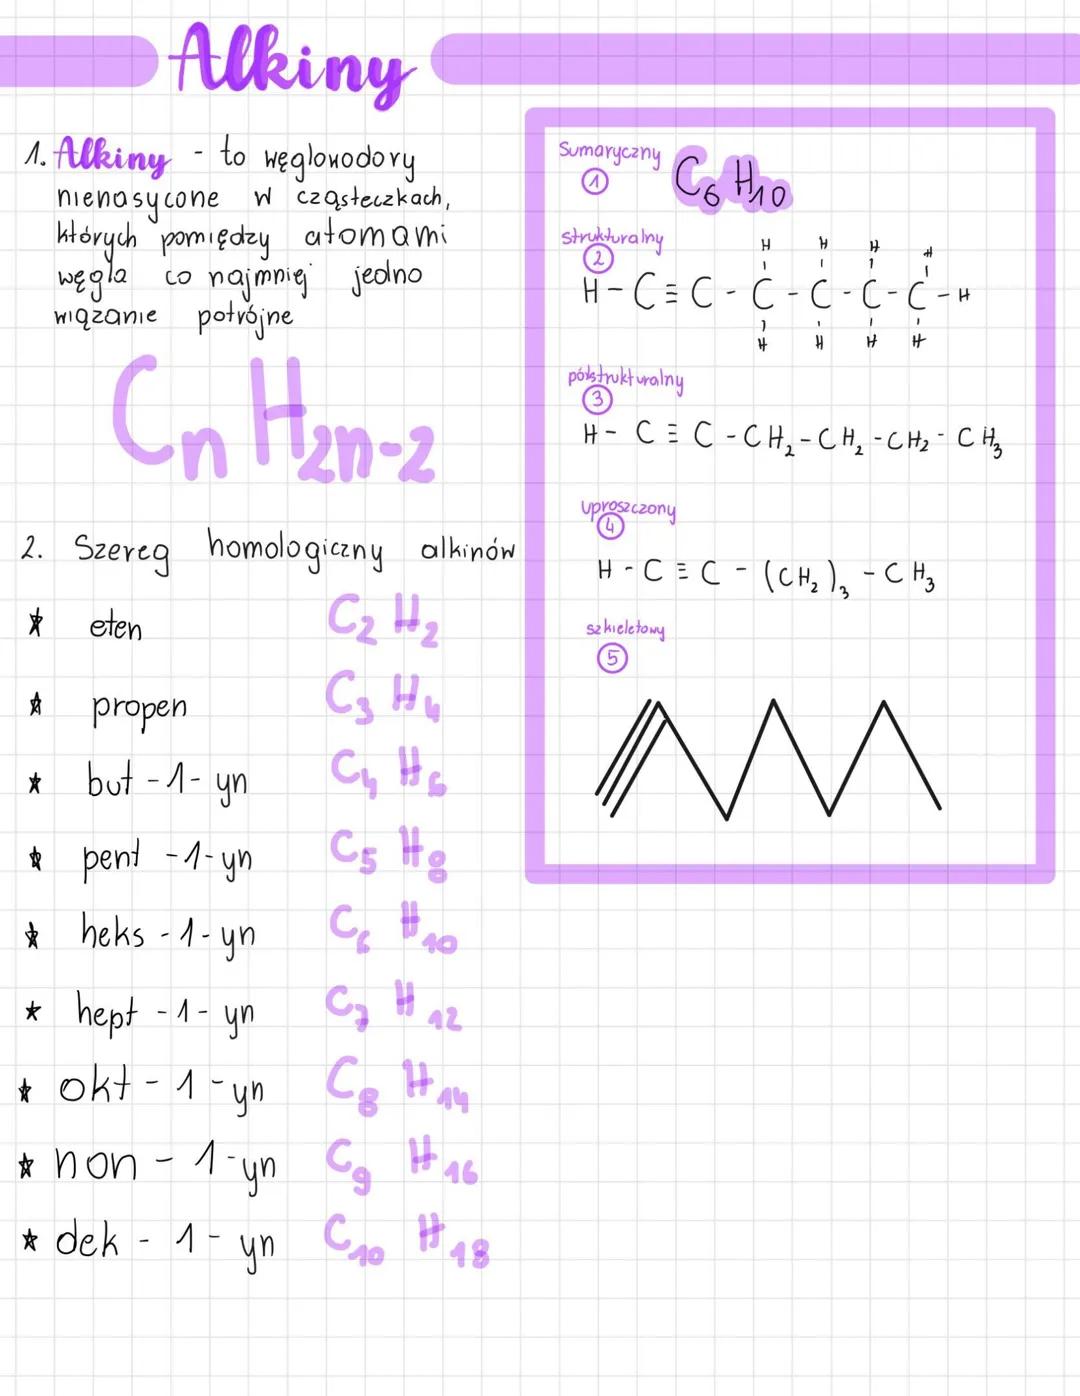 Alkiny
1. Alkiny - to węglowodory
nienasycone w cząsteczkach,
których pomiędzy atomami
węgla co najmniej jedno
wiązanie potrójne
CnH2n-2
2. Szereg homologiczny alkinów
★ eten C2H2
★ propen C3H4
★ but-1-yn C4H6
★ pent-1-yn C5H8
★ heks-1-yn C6H10
★ hept-1-yn C7H12
★ okt-1-yn C8H14
★ non-1-yn C9H16
★ dek-1-yn C10H18
Sumaryczny
① C6H10
strukturalny
②
H H H H
H-C≡C-C-C-C-C-H
H H H H
półstrukturalny
③
H-C≡C-CH2-CH2-CH2-CH3
uproszczony
④
H-C≡C-(CH2)3-CH3
szkieletowy
⑤